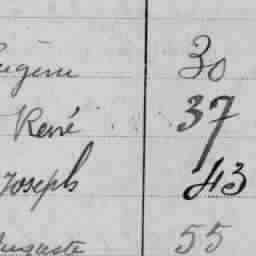 Eugène 30
René 37
Joseph 43
Auguste 55